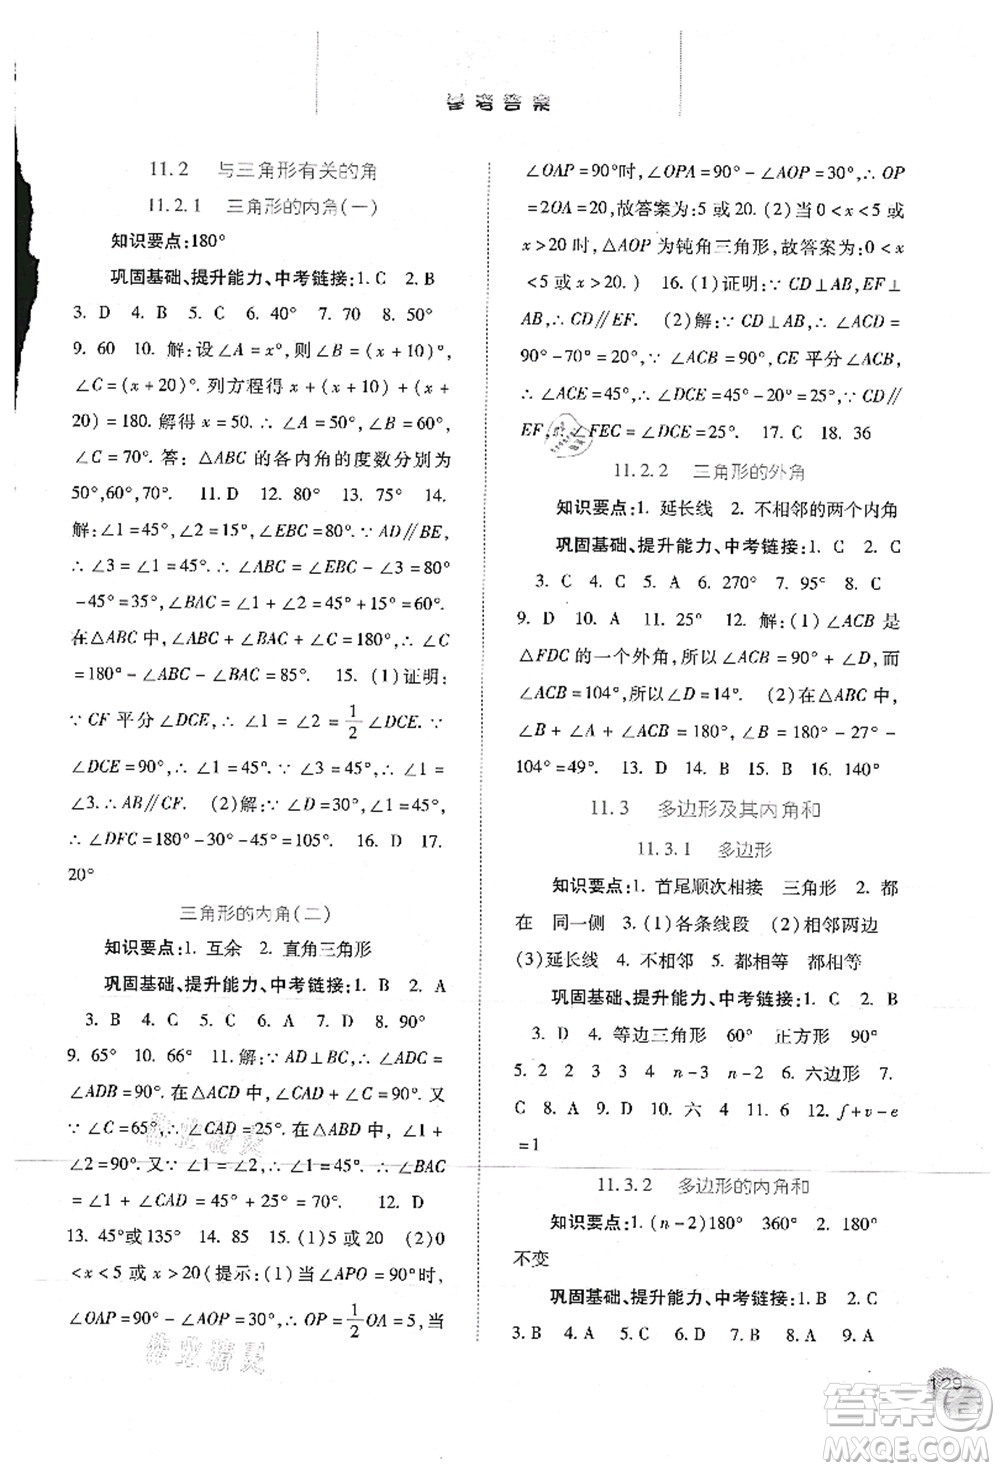 参考答案
11.2 与三角形有关的角
11.2.1 三角形的内角(一)
知识要点:180°
巩固基础、提升能力、中考链接:1. C 2. B
3. D 4. B 5. B 6. 40° 7. 70 8. 50°
9. 60 10. 解:设∠A=x°,则∠B=(x+10)°,
∠C=(x+20)°. 列方程得x+(x+10)+(x+
20)=180. 解得x=50. ∴∠A=50°,∠B=60°,
∠C=70°. 答:△ABC的各内角的度数分别为
50°,60°,70°. 11. D 12. 80° 13. 75° 14.
解:∠1=45°,∠2=15°,∠EBC=80°. ∵AD∥BE,
∴∠3=∠1=45°. ∴∠ABC=∠EBC-∠3=80°
-45°=35°,∠BAC=∠1+∠2=45°+15°=60°.
在△ABC中,∠ABC+∠BAC+∠C=180°,∴∠C
=180°-∠ABC-∠BAC=85°. 15. (1)证明:
∵CF平分∠DCE,∴∠1=∠2=1/2∠DCE. ∵
∠DCE=90°,∴∠1=45°. ∵∠3=45°,∴∠1=
∠3. ∴AB∥CF. (2)∵∠D=30°,∠1=45°,
∴∠DFC=180°-30°-45°=105°. 16. 40° 17.
20°
三角形的内角(二)
知识要点:1. 互余 2. 直角三角形
巩固基础、提升能力、中考链接:1. B 2. A
3. B 4. C 5. B 6. B 7. D 8. 90°
9. 65° 10. 66° 11. 解:∵AD⊥BC,∴∠ADC=
∠ADB=90°. 在△ACD中,∠CAD+∠C=90°. 又
∵∠C=65°,∴∠CAD=25°. 在△ABD中,∠1+
∠2=90°. 又∵∠1=∠2,∴∠1=45°. ∴∠BAC
=∠1+∠CAD=45°+25°=70°. 12. D
13. 45°或135° 14. 85 15. (1)5或20 (2)0
<x<5或x>20(提示:(1)当∠APO=90°时,
∠OAP=90°-∠AOP=30°,∴OP=1/2OA=5,当
∠OAP=90°时,∠OPA=90°-∠AOP=30°,∴OP
=2OA=20,故答案为:5或20. (2)当0<x<5或
x>20时,△AOP为钝角三角形,故答案为:0<x
<5或x>20.) 16. (1)证明:∵CD⊥AB,EF⊥
AB,∴CD∥EF. (2)解:∵CD⊥AB,∴∠ACD=
90°-70°=20°. ∵∠ACB=90°,CE平分∠ACB,
∴∠ACE=45°,∴∠DCE=45°-20°=25°. ∵CD∥
EF,∴∠FEC=∠DCE=25°. 17. C 18. 36
11.2.2 三角形的外角
知识要点:1. 延长线 2. 不相邻的两个内角
巩固基础、提升能力、中考链接:1. C 2. C
3. C 4. C 5. A 6. 270° 7. 95° 8. C
9. D 10. A 11. 25° 12. 解:(1)∠ACB是
△FDC的一个外角,所以∠ACB=90°+∠D,而
∠ACB=104°,所以∠D=14°. (2)在△ABC中,
∠B+∠A+∠ACB=180°,∠B=180°-27°-
104°=49°. 13. D 14. B 15. D 16. 140°
11.3 多边形及其内角和
11.3.1 多边形
知识要点:1. 首尾顺次相接 三角形 2. 都
在 同一侧 3. (1)各条线段 (2)相邻两边
(3)延长线 4. 不相邻 5. 都相等 都相等
巩固基础、提升能力、中考链接:1. C 2. B
3. D 4. 等边三角形 60° 正方形 90°
5. 2 1 3 2 4 3 n-3 n-2 6. 六边形 7.
C 8. A 9. B 10. 六 4 11. 7 12. f+v-e
=1
11.3.2 多边形的内角和
知识要点:1. (n-2)180° 360° 2. 180°
不变
巩固基础、提升能力、中考链接:1. B 2. C
3. B 4. D 5. B 6. A 7. B 8. A 9. A
129
作业精灵
作业精灵
答案圈
MXQE.COM